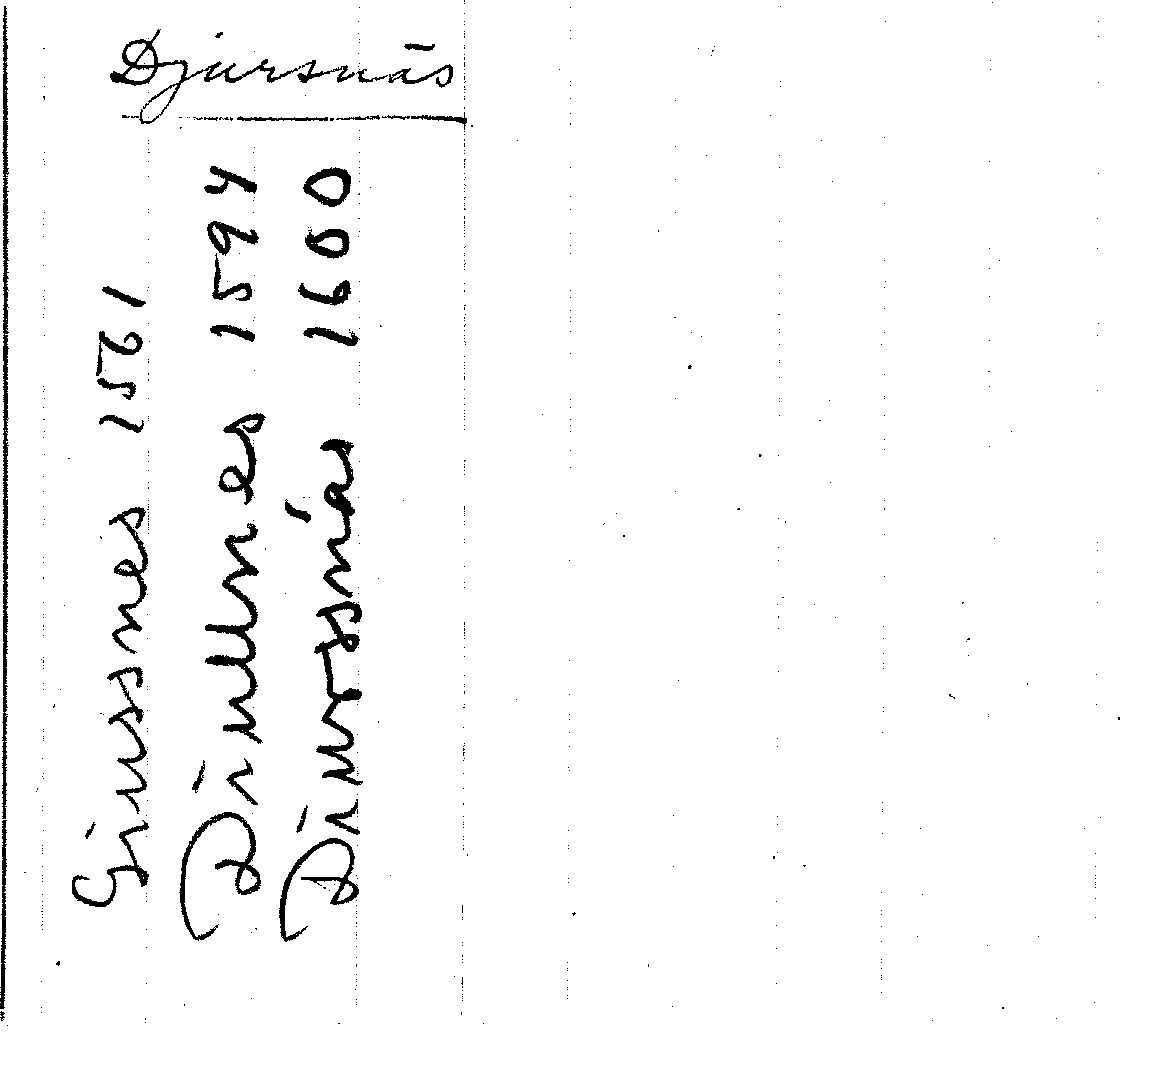 Djursnäs
Giussnes 1561
Diullnes 1594
Diursnäs 1600